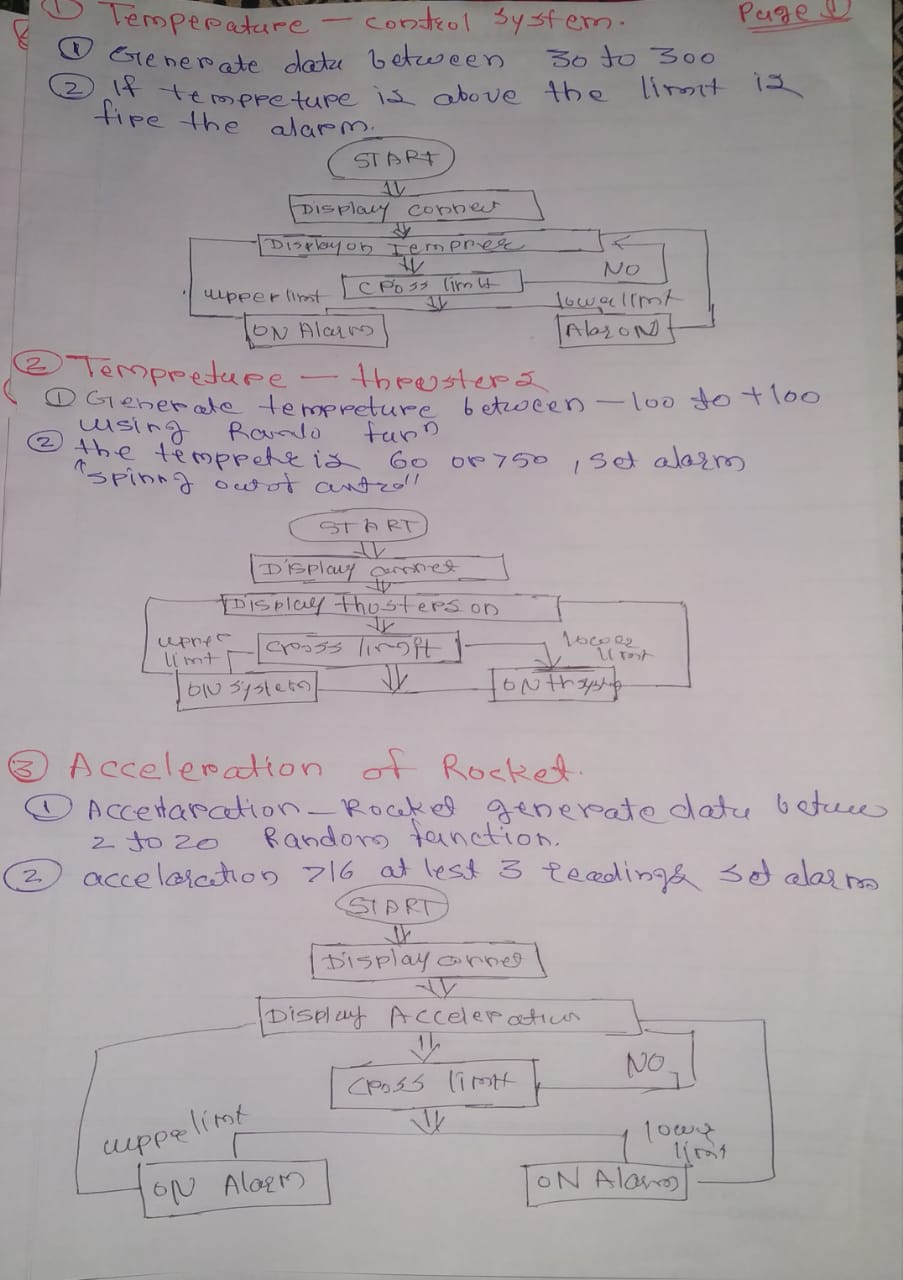 ① Temperature - control system. Page ①
① Generate data between 30 to 300
② If tempreture is above the limit is
fire the alarm.
START
Display connect
Display on Tempree
NO
Cross limit
upper limt
lower limt
ON Alarm
Alar ON
② Tempreture - thrusters
① Generate tempreture between -100 to +100
using fun^n
② the is 60 or 750, set alarm
"spinng out of
START
Display connet
Display thusters on
upper
limt
cross limit
lower
limt
ON system
ON
③ Acceleration of Rocket.
① - Rocket generate data between
2 to 20 Random function.
② acceleration >16 at lest 3 readings set alarm
START
Display connet
Display Acceleration
NO
cross limit
uppre limt
lower
limt
ON Alarm
ON Alarm